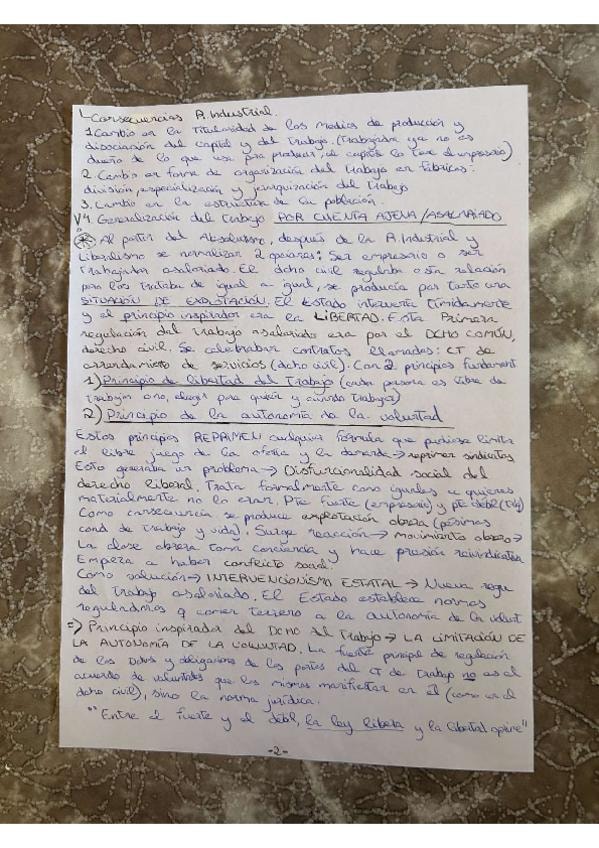 Consecuencias R. Industrial.
1. Cambio en la titularidad de los medios de producción y
disociación del capital y del trabajo. (Trabajador ya no es
dueño de lo que usa para producir, el capital lo tiene el empresario)
2. Cambio en forma de organización del trabajo en fábricas:
división, especialización y jerarquización del trabajo
3. Cambio en la estructura de la población.
4. Generalización del trabajo POR CUENTA AJENA/ASALARIADO
Al partir del Absolutismo, después de la R. Industrial y
Liberalismo se normalizan 2 opciones: Ser empresario o ser
trabajador asalariado. El dcho civil regulaba esta relación
pero los trataba de igual a igual, se producía por tanto una
SITUACIÓN DE EXPLOTACIÓN. El Estado intervenía tímidamente
y el principio inspirador era la LIBERTAD. Esta primera
regulación del trabajo asalariado era por el DCHO COMÚN,
derecho civil. Se celebraban contratos llamados: CT de
arrendamiento de servicios (dcho civil). Con 2 principios fundament
1) Principio de libertad del Trabajo (cada persona es libre de
trabajar o no, elegir para quién y cuándo trabajar)
2) Principio de la autonomía de la voluntad
Estos principios REPRIMEN cualquier fórmula que pudiese limitar
el libre juego de la oferta y la demanda → reprimir sindicatos
Esto generaba un problema → Disfuncionalidad social del
derecho liberal. Trata formalmente como iguales a quienes
materialmente no lo eran. Pte fuerte (empresario) y pte débil (trbj)
Como consecuencia se produce explotación obrera (pésimas
cond de trabajo y vida). Surge reacción → movimiento obrero →
La clase obrera toma conciencia y hace presión reivindicativa
Empieza a haber conflicto social.
Como solución → INTERVENCIONISMO ESTATAL → Nueva regu
del trabajo asalariado. El Estado establece normas
reguladoras q ponen terreno a la autonomía de la volunt
⇒ Principio inspirador del Dcho del Trabajo → LA LIMITACIÓN DE
LA AUTONOMÍA DE LA VOLUNTAD. La fuente principal de regulación
de los dchos y obligaciones de las partes del CT de trabajo no es el
acuerdo de voluntades que los mismos manifiestan en él (como es el
dcho civil), sino la norma jurídica.
"Entre el fuerte y el débil, la ley libera y la libertad oprime"
-2-